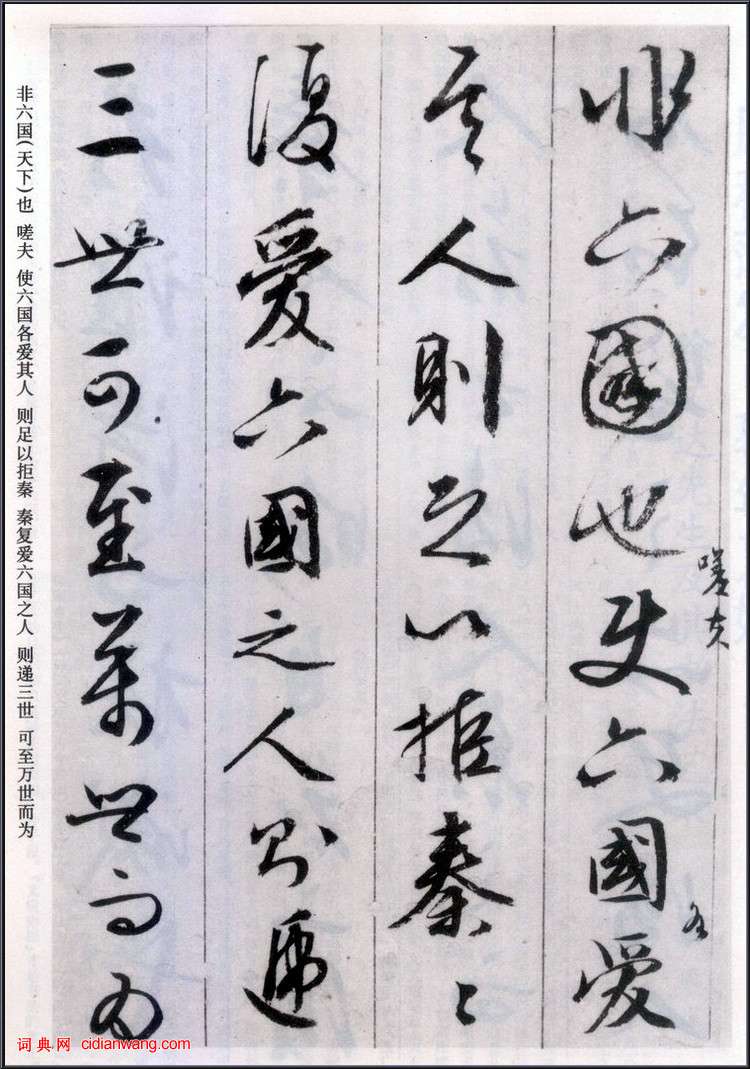 非六國也使六國愛
嗟夫
各
其人則足以拒秦〻
復愛六國之人則遞
三世可至萬世而為
非六国(天下)也 嗟夫 使六国各爱其人 则足以拒秦 秦复爱六国之人 则递三世 可至万世而为
词典网 cidianwang.com